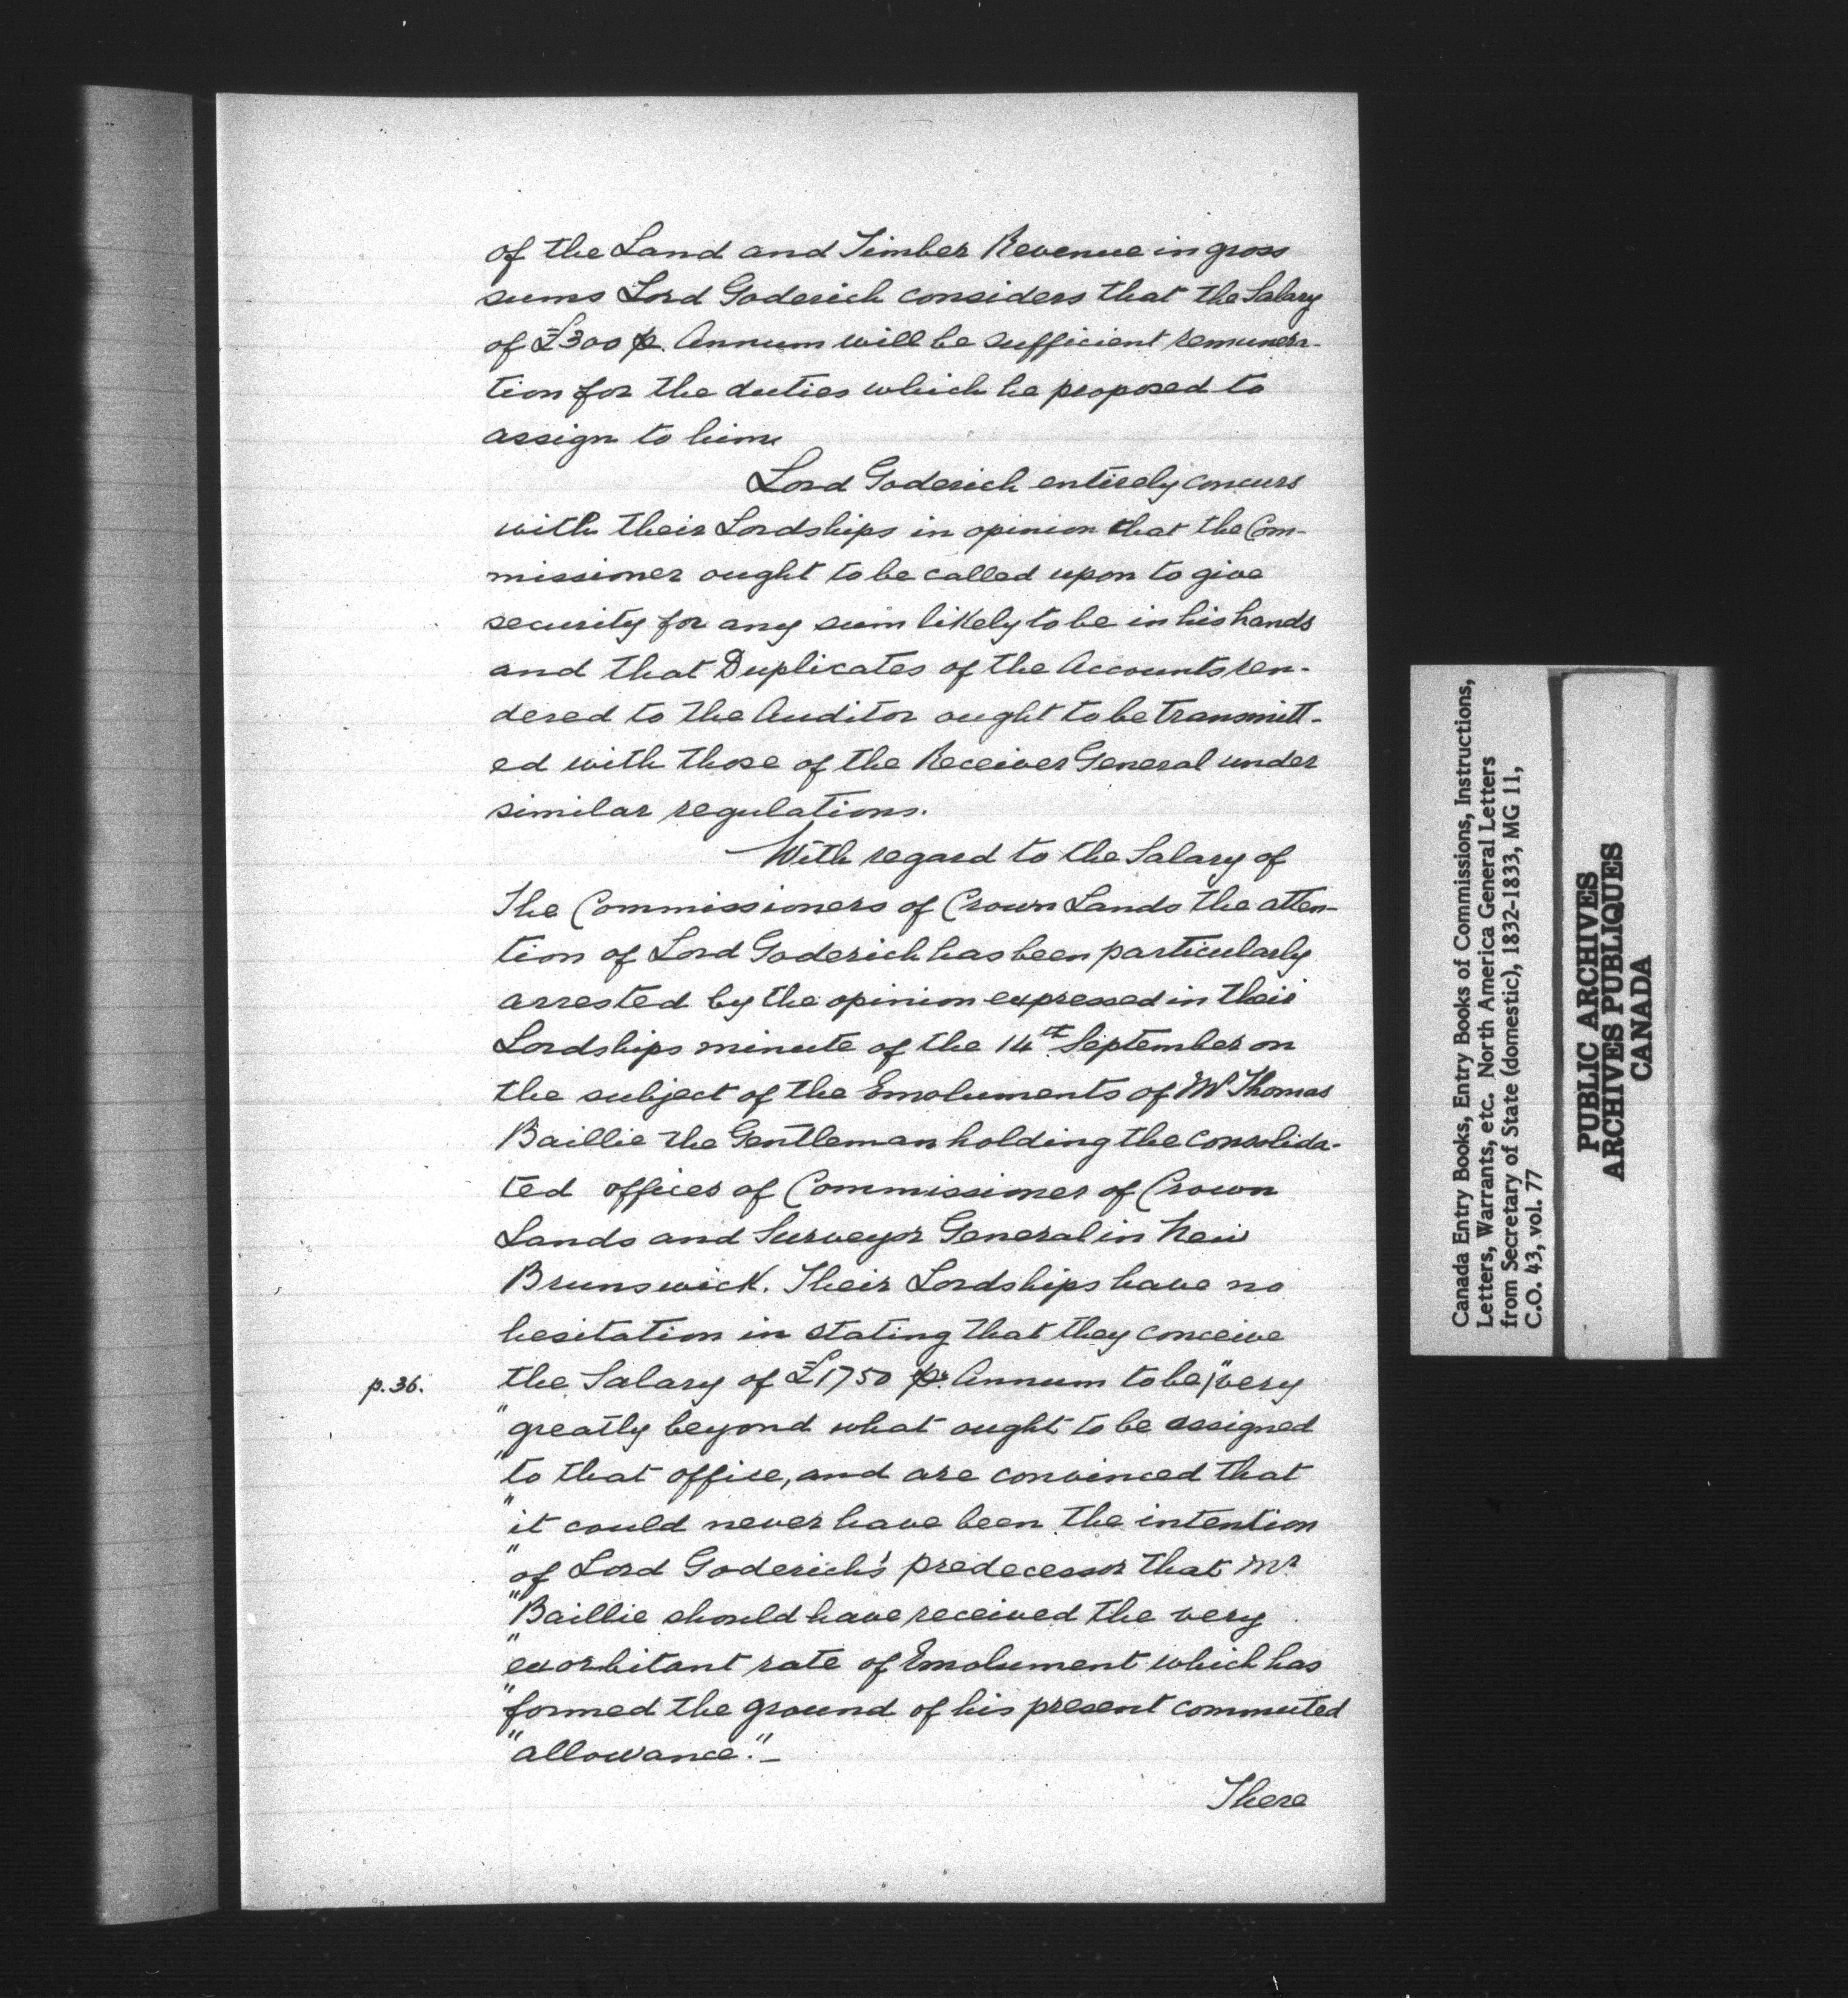 of the Land and Timber Revenue in gross
sums Lord Goderich considers that the Salary
of £300 p. Annum will be sufficient remunera-
tion for the duties which he proposed to
assign to him.
Lord Goderich entirely concurs
with their Lordships in opinion that the Com-
missioner ought to be called upon to give
security for any sum likely to be in his hands
and that Duplicates of the Accounts ren-
dered to the Auditor ought to be transmitt-
ed with those of the Receiver General under
similar regulations.
With regard to the Salary of
the Commissioners of Crown Lands the atten-
tion of Lord Goderich has been particularly
arrested by the opinion expressed in their
Lordships minute of the 14th September on
the subject of the Emoluments of Mr Thomas
Baillie the Gentleman holding the consolida-
ted offices of Commissioner of Crown
Lands and Surveyor General in New
Brunswick. Their Lordships have no
hesitation in stating that they conceive
p.36. the Salary of £1750 pr. Annum to be, "very
"greatly beyond what ought to be assigned
"to that office, and are convinced that
"it could never have been the intention
"of Lord Goderich's predecessor that Mr
"Baillie should have received the very
"exorbitant rate of Emolument which has
"formed the ground of his present commuted
"allowance."-
There
Canada Entry Books, Entry Books of Commissions, Instructions,
Letters, Warrants, etc. North America General Letters
from Secretary of State (domestic), 1832-1833, MG 11,
C.O. 43, vol. 77
PUBLIC ARCHIVES
ARCHIVES PUBLIQUES
CANADA